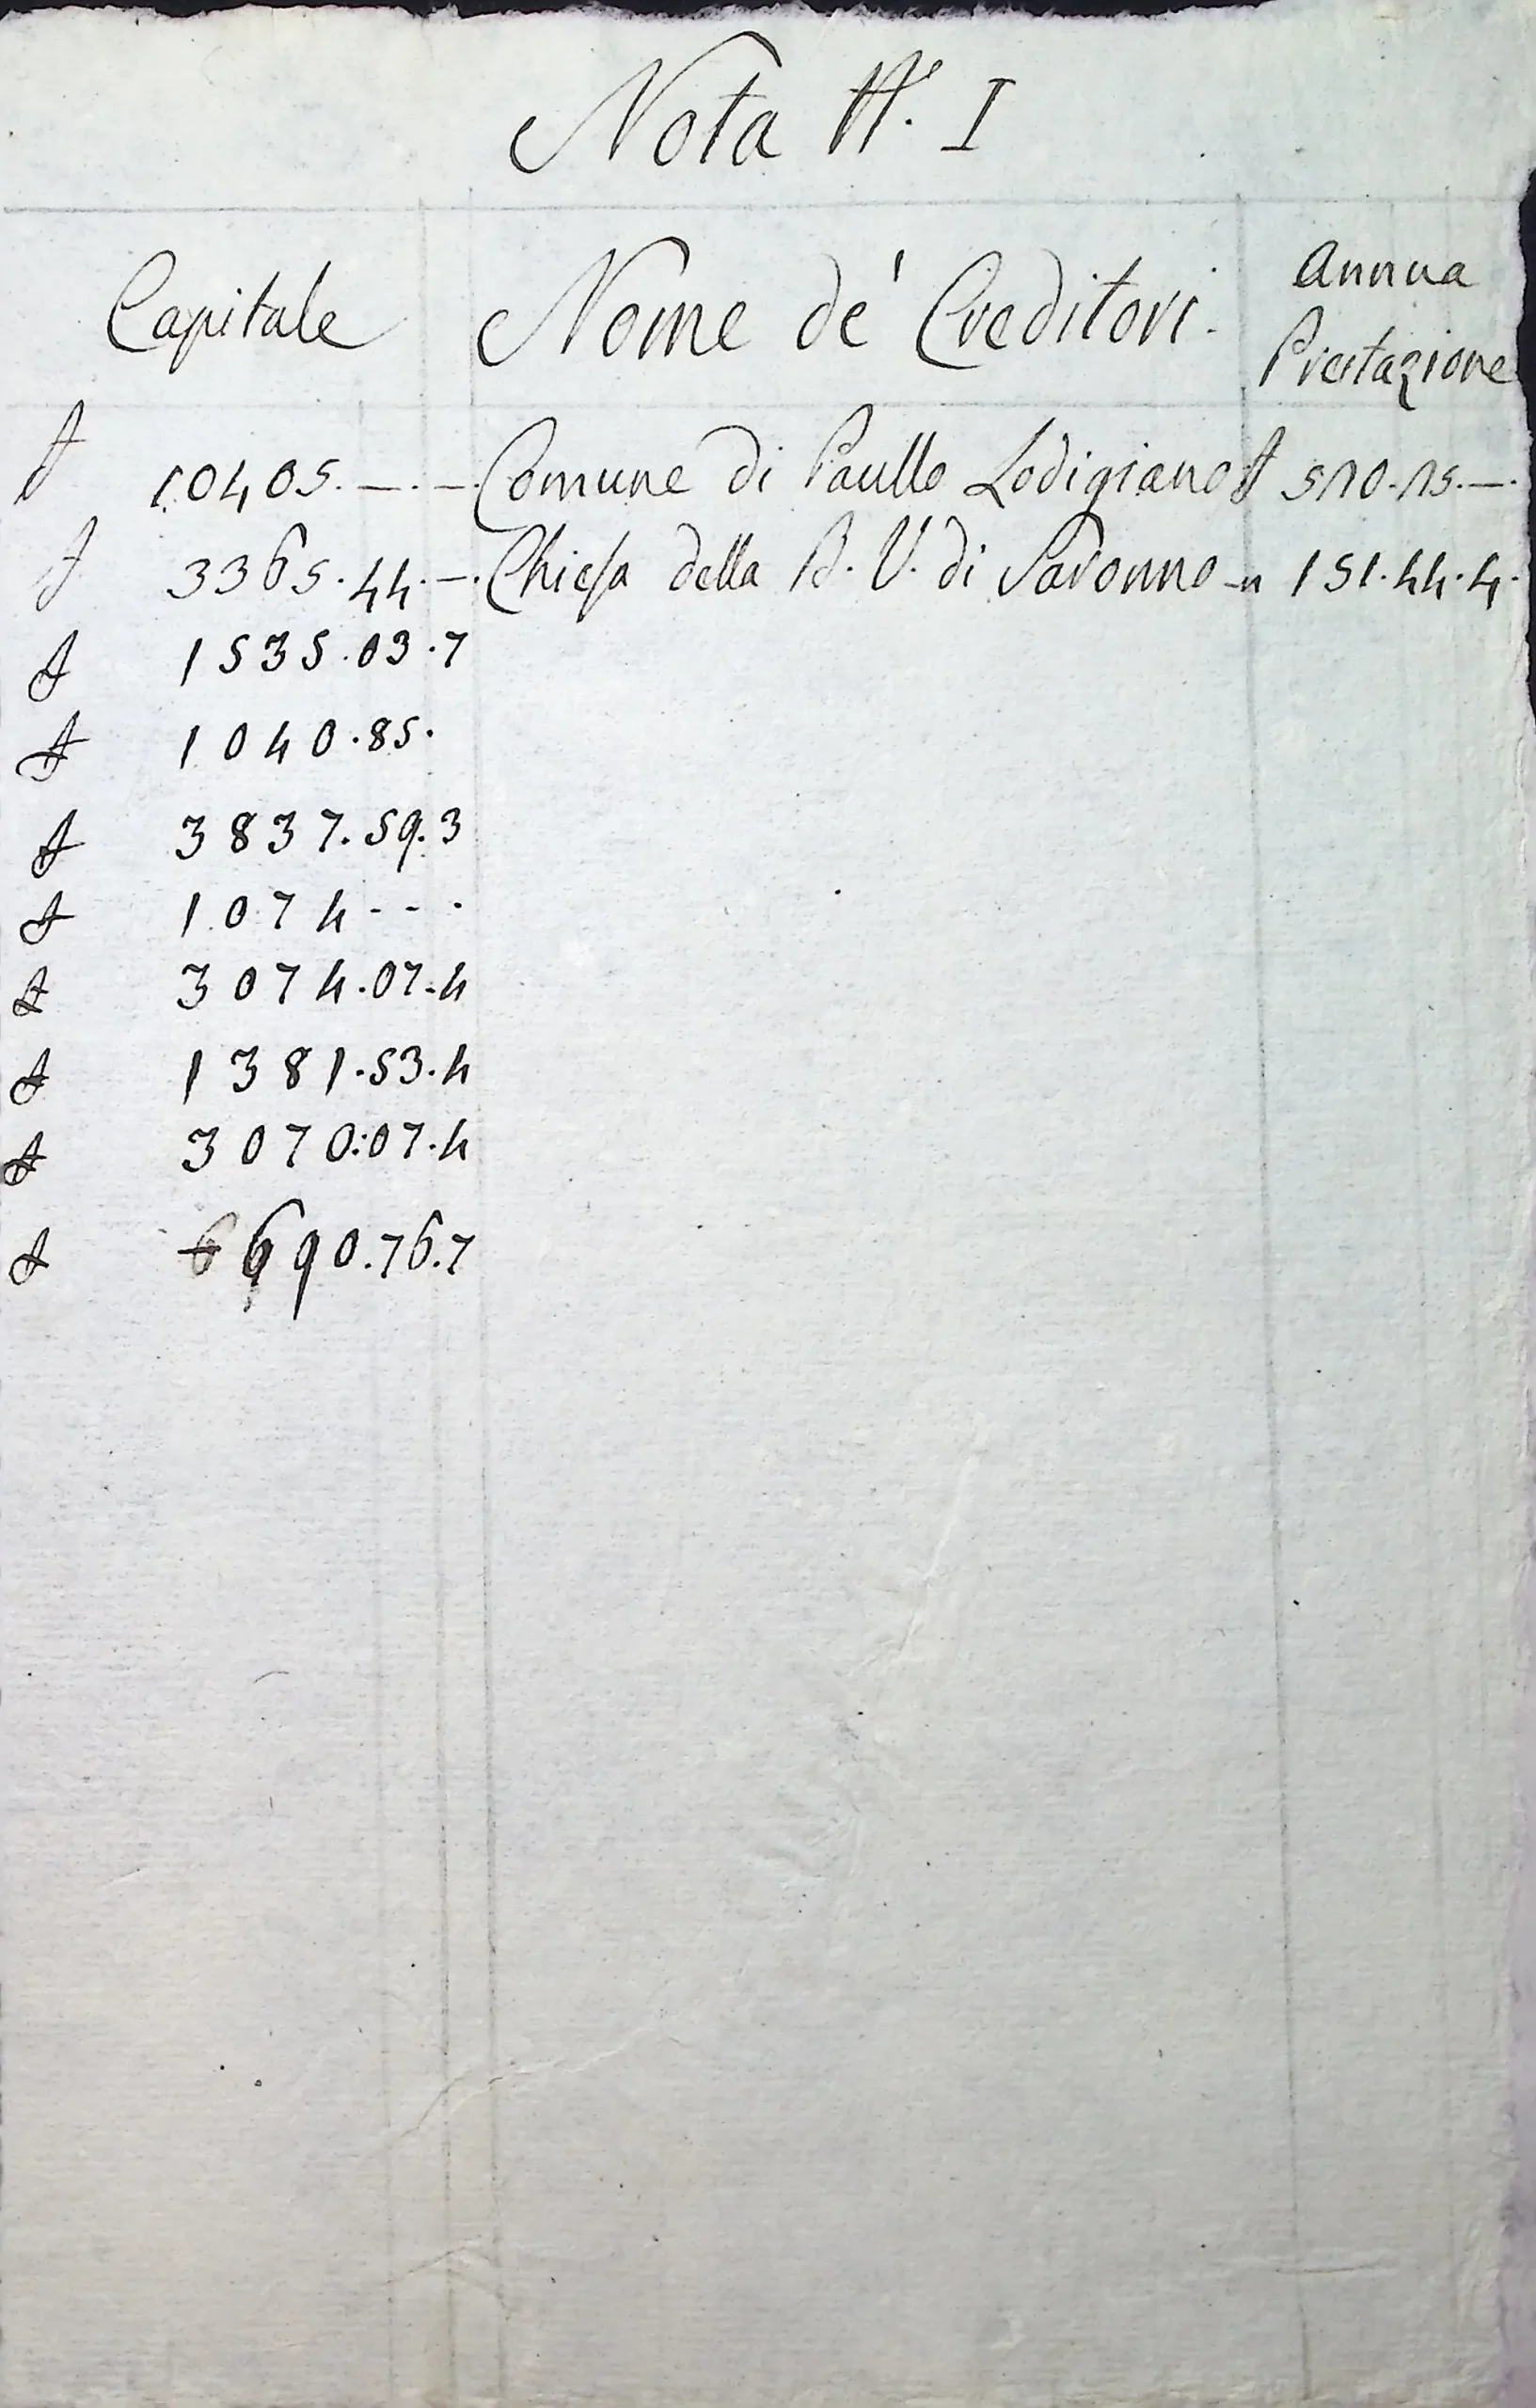 Nota N.° I
Capitale Nome de' Creditori. Annua Prestazione
£ 10405. —. —. Comune di Paullo Lodigiano £ 510.15.—.
£ 3365.44.—. Chiesa della B. V. di Saronno — " 151.44.4.
£ 1535.03.7
£ 1040.85.
£ 3837.59.3
£ 1074 - - .
£ 3074.07.4
£ 1381.53.4
£ 3070:07.4
£ 6690.76.7